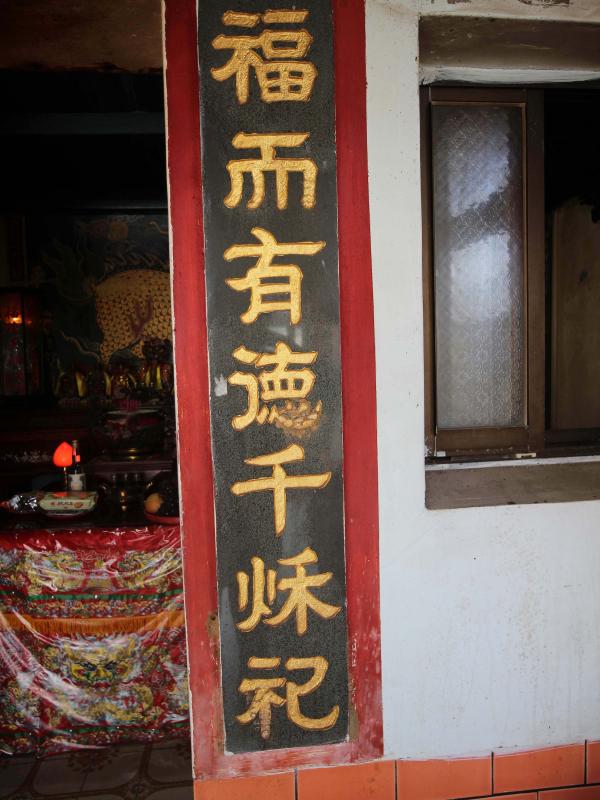 福而有德千秌祀